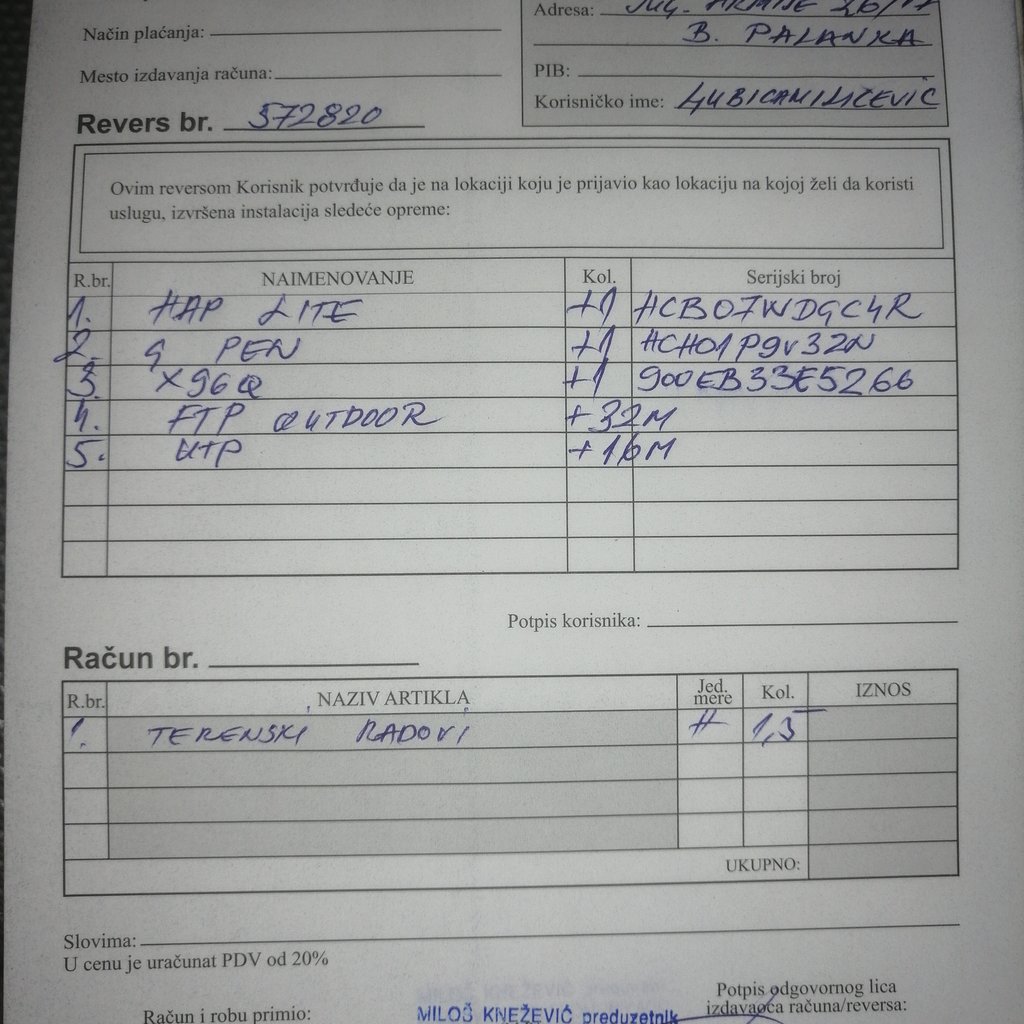 Način plaćanja:
Adresa: JUG. ARMIJE 26/17
B. PALANKA
Mesto izdavanja računa:
PIB:
Korisničko ime: LJUBICAMILICEVIĆ
Revers br. 572820
Ovim reversom Korisnik potvrđuje da je na lokaciji koju je prijavio kao lokaciju na kojoj želi da koristi
uslugu, izvršena instalacija sledeće opreme:
R.br. NAIMENOVANJE Kol. Serijski broj
1. HAP LITE +1 HCB07WDGC4R
2. G PEN +1 HCH01P9V32N
3. X96Q +1 900EB33E5266
4. FTP OUTDOOR +32M
5. UTP +16M
Potpis korisnika:
Račun br.
R.br. NAZIV ARTIKLA Jed. mere Kol. IZNOS
1. TERENSKI RADOVI H 1,5
UKUPNO:
Slovima:
U cenu je uračunat PDV od 20%
Potpis odgovornog lica
Račun i robu primio: MILOŠ KNEŽEVIĆ preduzetnik izdavaoca računa/reversa: